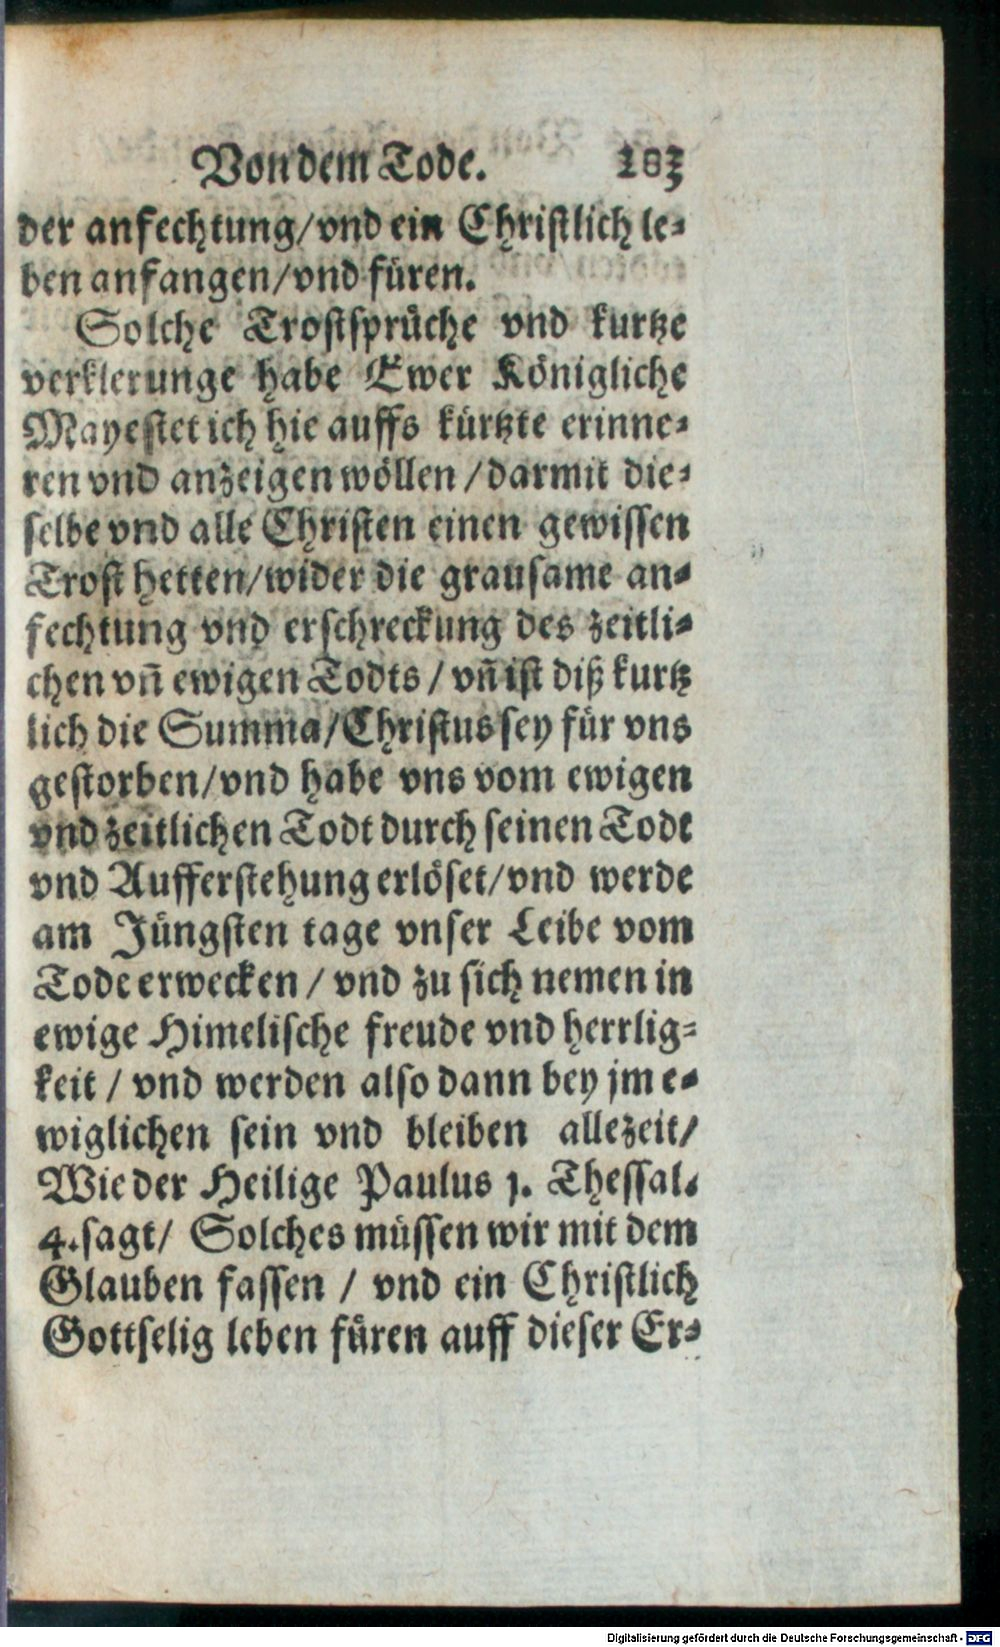 Von dem Tode. 183
der anfechtung/vnd ein Christlich le-
ben anfangen/vnd füren.
Solche Trostsprüche vnd kurtze
verklerunge habe Ewer Königliche
Mayestet ich hie auffs kürtzte erinne-
ren vnd anzeigen wöllen/darmit die-
selbe vnd alle Christen einen gewissen
Trost hetten/wider die grausame an-
fechtung vnd erschreckung des zeitli-
chen vñ ewigen Todts/vñ ist diß kurtz
lich die Summa/Christus sey für vns
gestorben/vnd habe vns vom ewigen
vnd zeitlichen Todt durch seinen Todt
vnd Aufferstehung erlöset/vnd werde
am Jüngsten tage vnser Leibe vom
Tode erwecken/vnd zu sich nemen in
ewige Himelische freude vnd herrlig-
keit/vnd werden also dann bey jm e-
wiglichen sein vnd bleiben allezeit/
Wie der Heilige Paulus 1. Thessal.
4. sagt/ Solches müssen wir mit dem
Glauben fassen/vnd ein Christlich
Gottselig leben füren auff dieser Er-
Digitalisierung gefördert durch die Deutsche Forschungsgemeinschaft - DFG